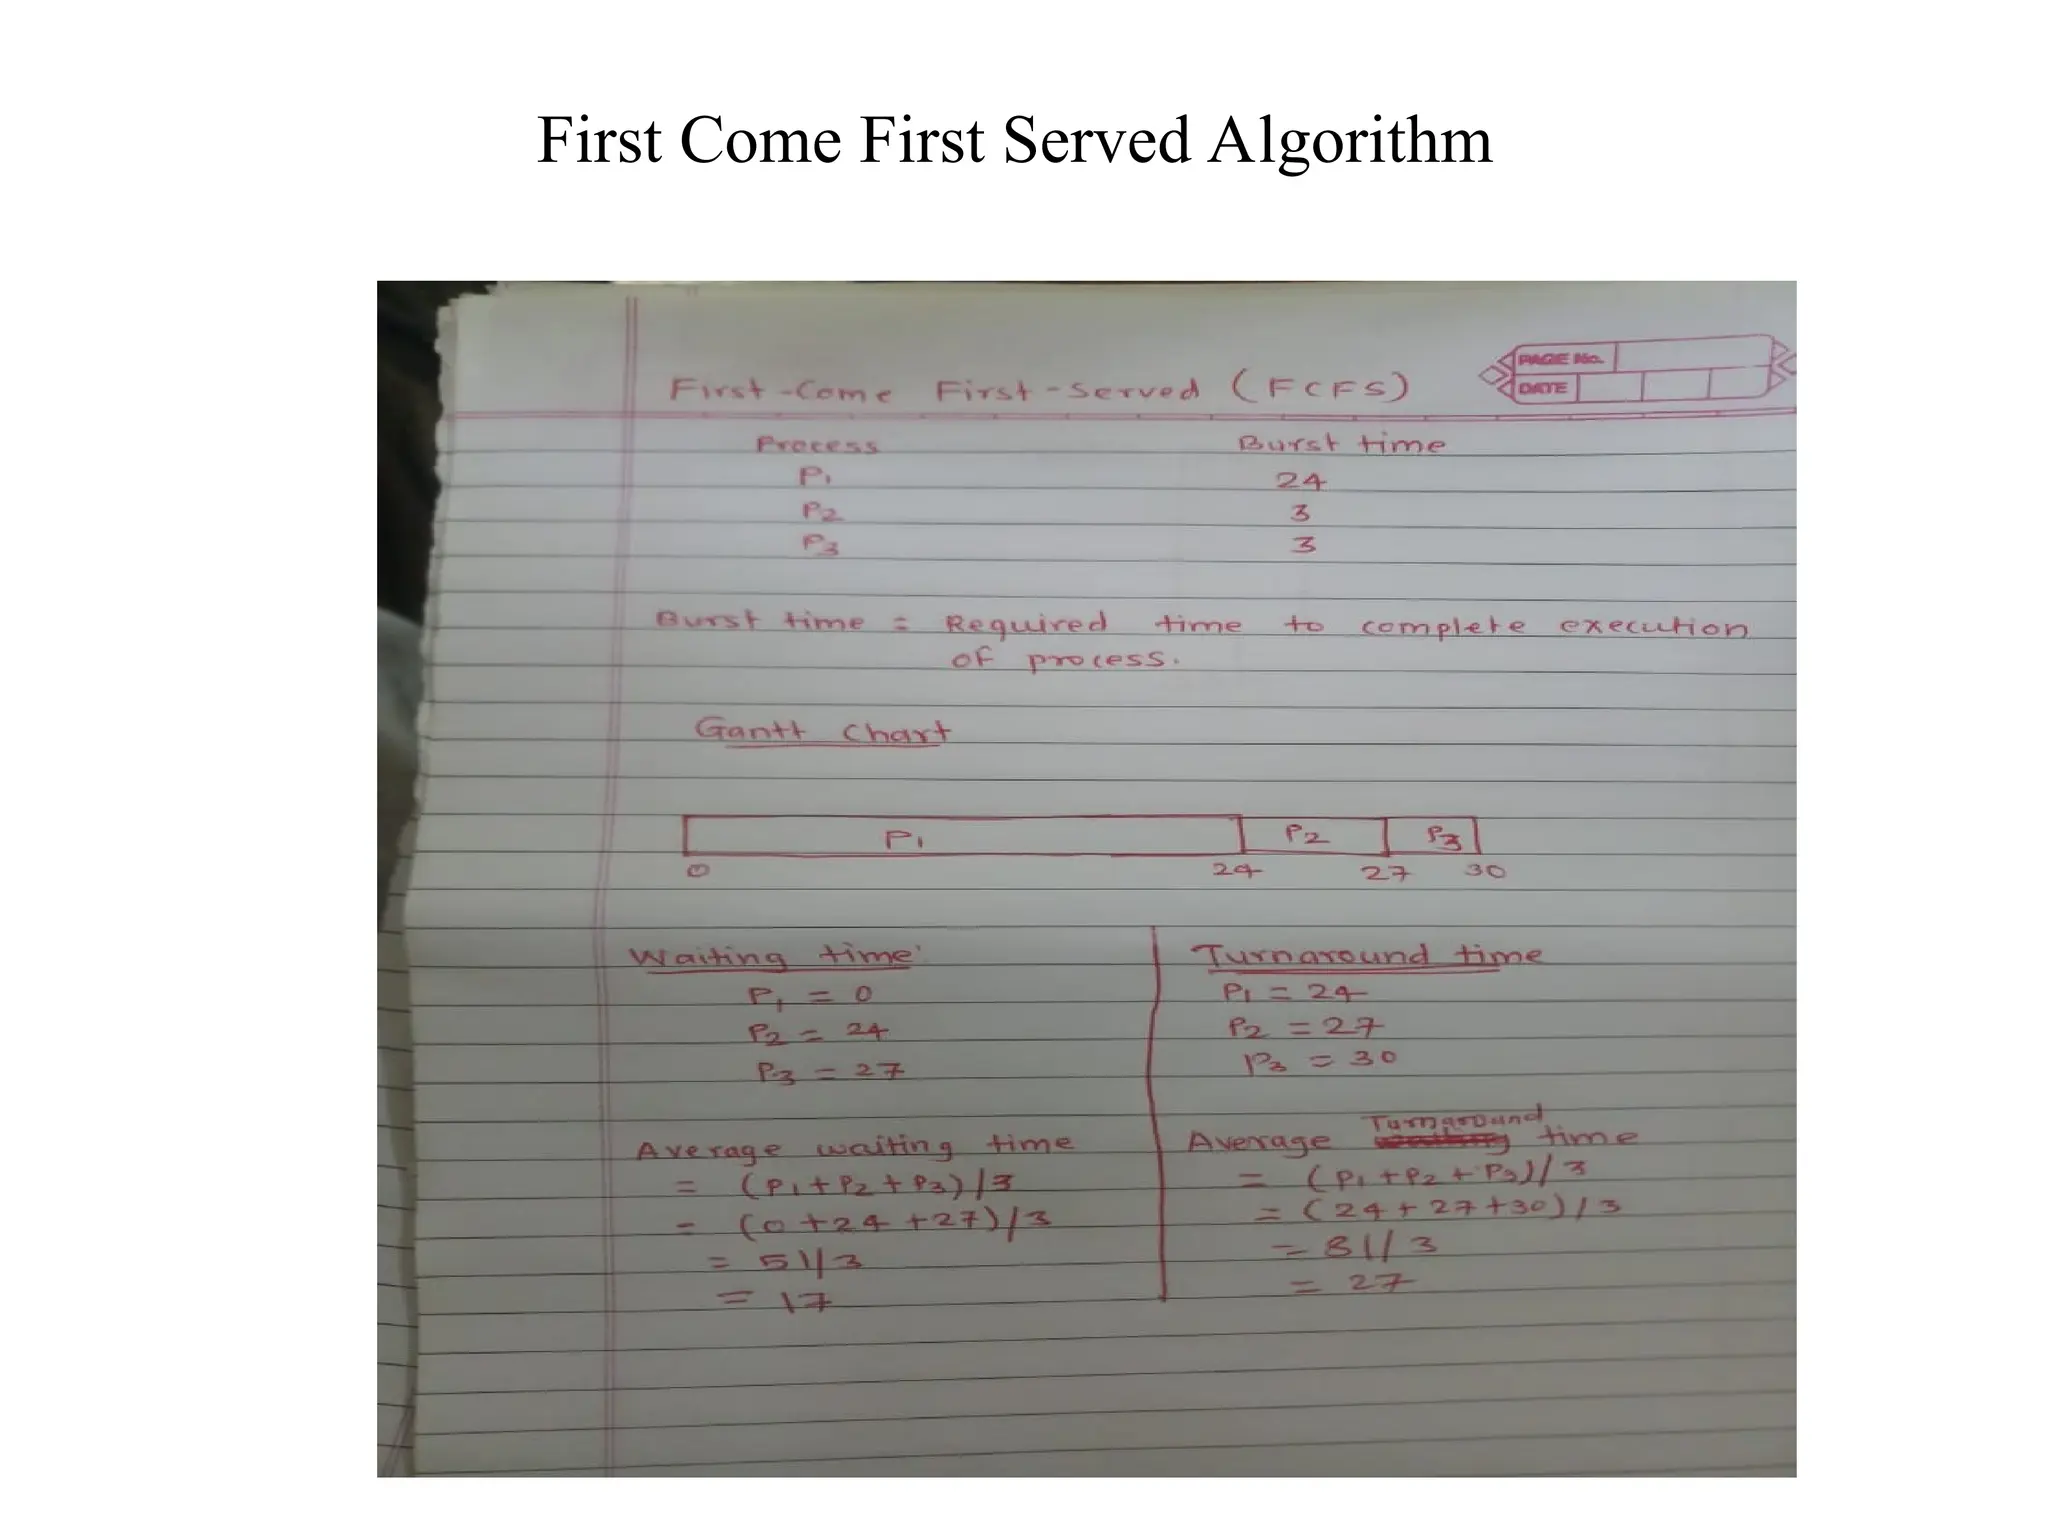 First Come First Served Algorithm
PAGE No.
DATE
First-Come First-Served (FCFS)
Process Burst time
P1 24
P2 3
P3 3
Burst time = Required time to complete execution
of process.
Gantt Chart
P1 P2 P3
0 24 27 30
Waiting time:
P1 = 0
P2 = 24
P3 = 27
Average waiting time
= (P1+P2+P3)/3
= (0+24+27)/3
= 51/3
= 17
Turnaround time
P1 = 24
P2 = 27
P3 = 30
Average Turnaround time
= (P1+P2+P3)/3
= (24+27+30)/3
= 81/3
= 27